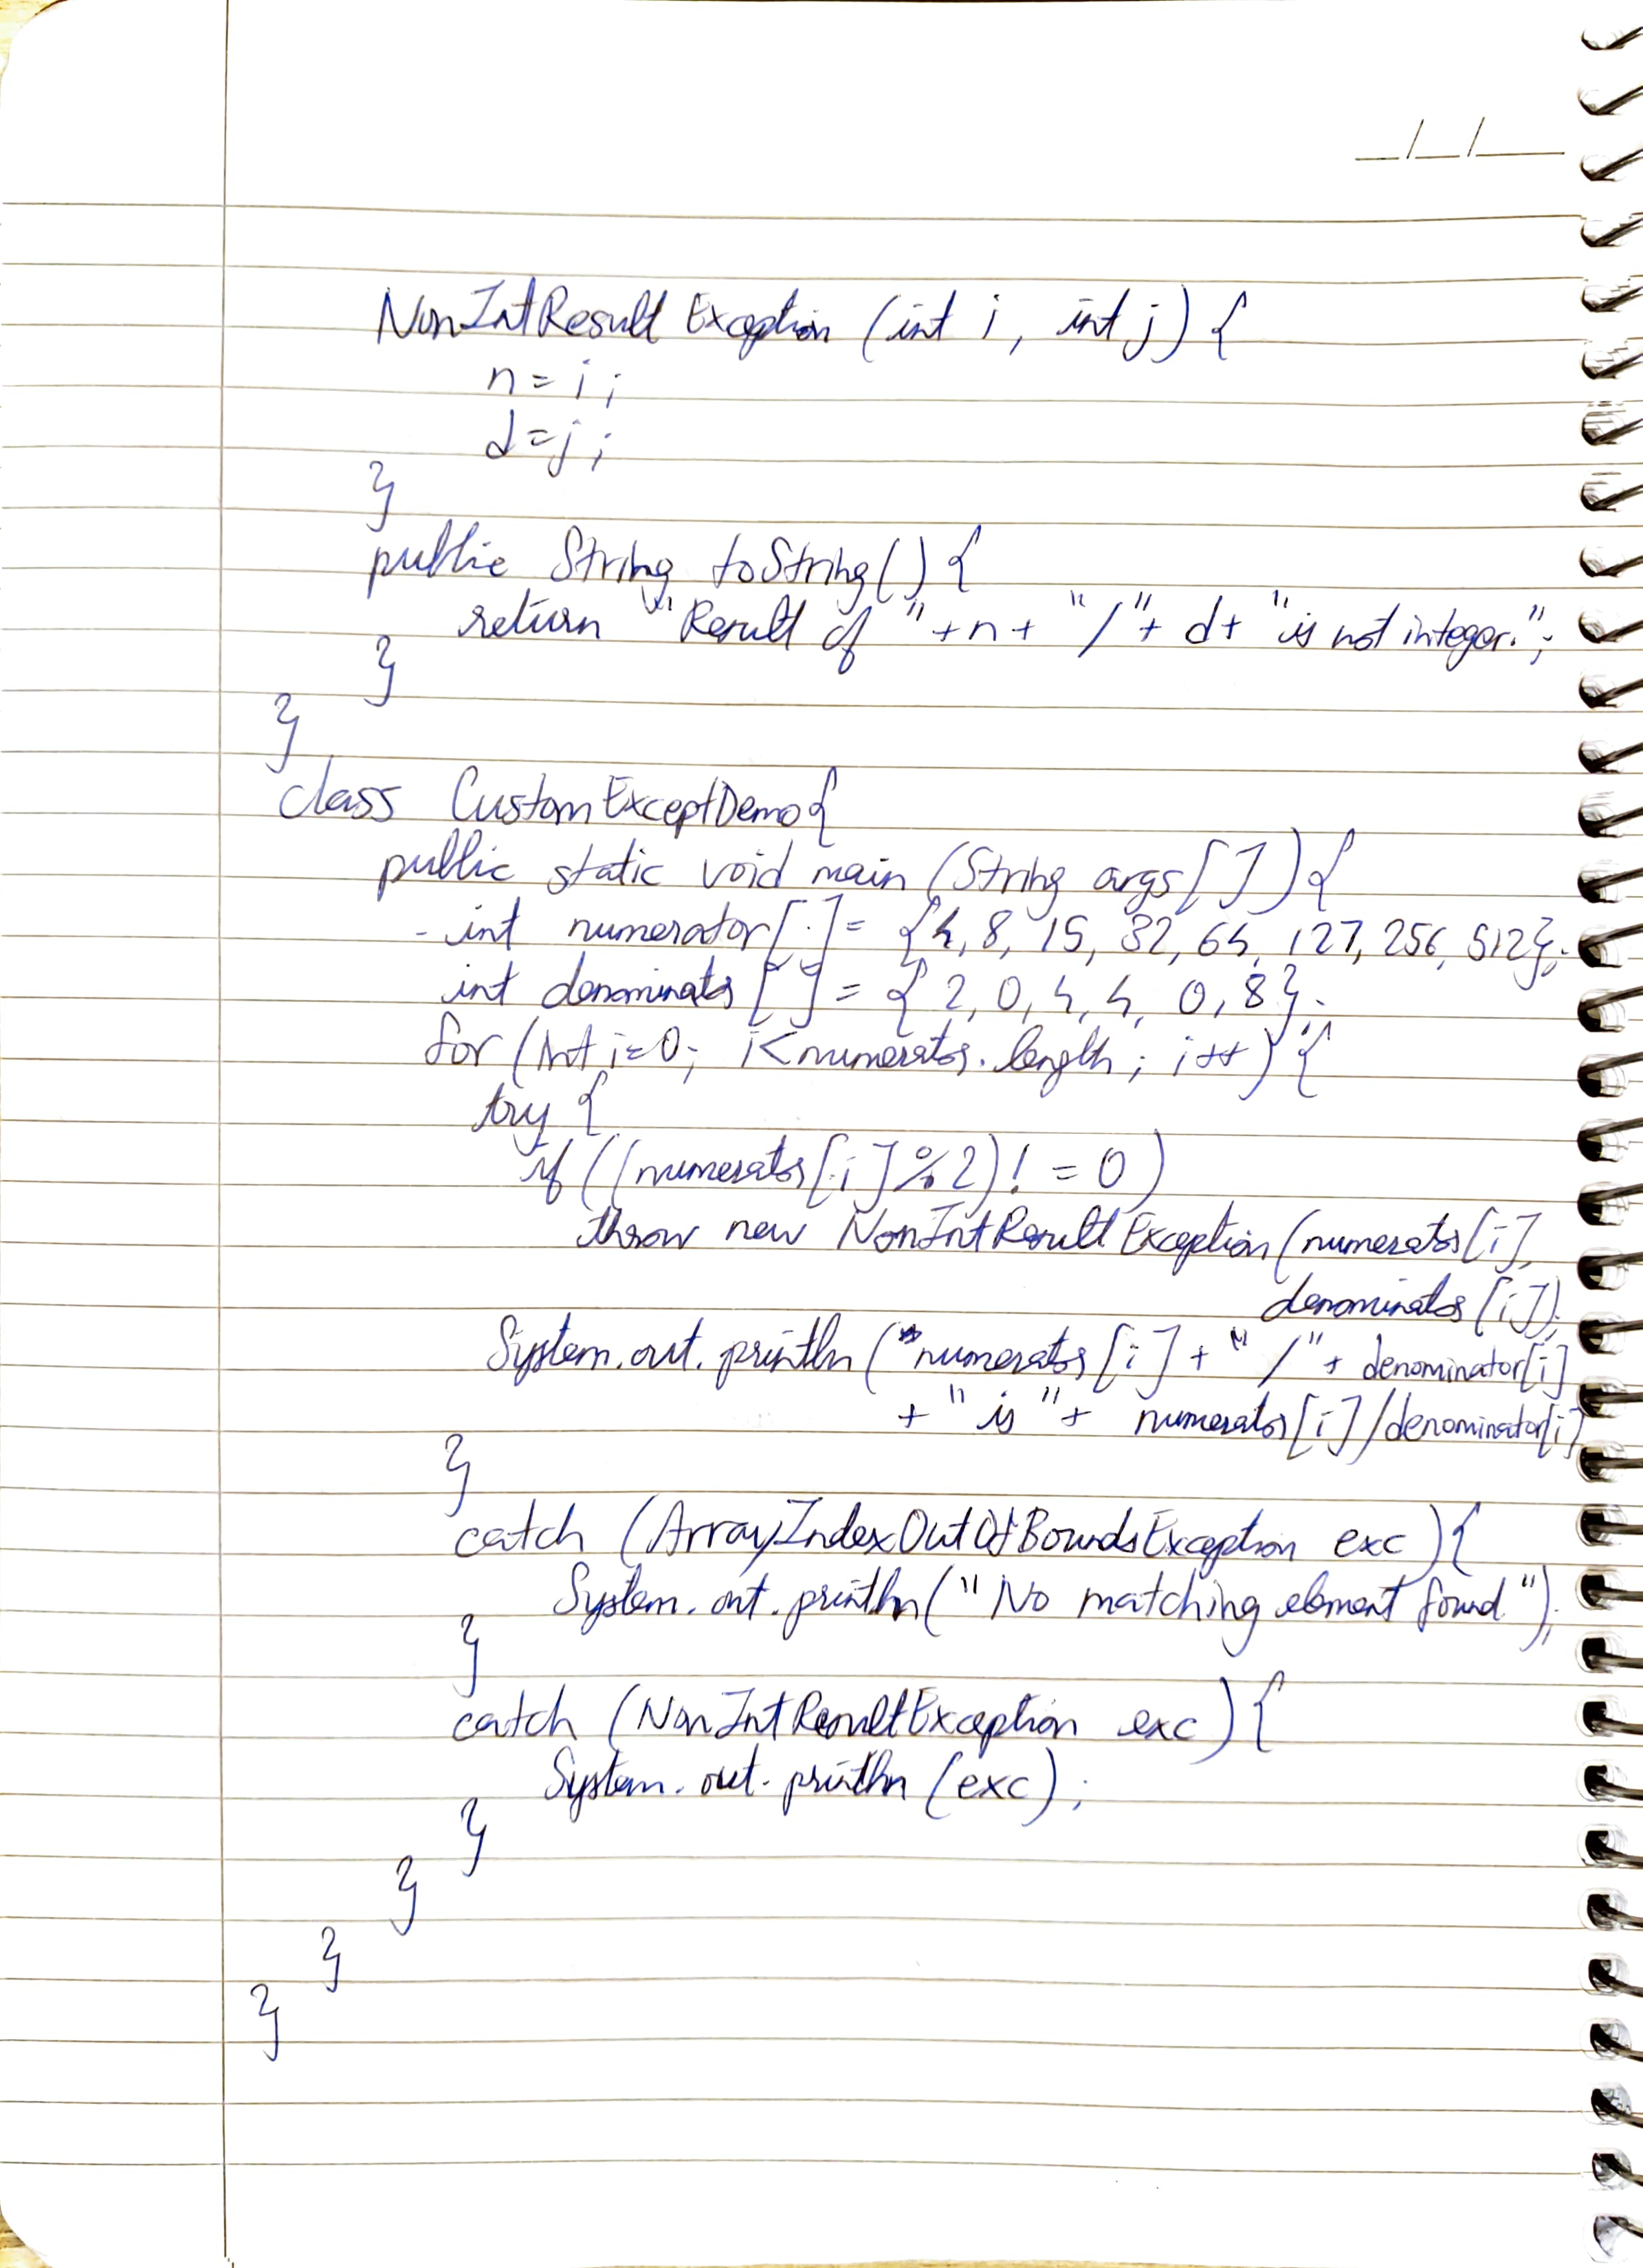 __/__/____
NonIntResult Exception (int i, int j) {
n = i ;
d = j ;
}
public String toString() {
return "Result of " + n + "/" + d + "is not integer.";
}
}
class CustomExceptDemo {
public static void main (String args[]) {
- int numerator[] = {4, 8, 15, 32, 64, 127, 256, 512};
int denominator [] = { 2, 0, 4, 4, 0, 8};
for (int i=0; i<numerator.length; i++) {
try {
if ((numerator[i] % 2) != 0)
throw new NonIntResultException(numerator[i],
denominator[i]);
System.out.println ("numerator[i] + "/" + denominator[i]
+ " is " + numerator[i]/denominator[i]
}
catch (ArrayIndexOutOfBoundsException exc) {
System.out.println("No matching element found");
}
catch (NonIntResultException exc) {
System.out.println (exc);
}
}
}
}